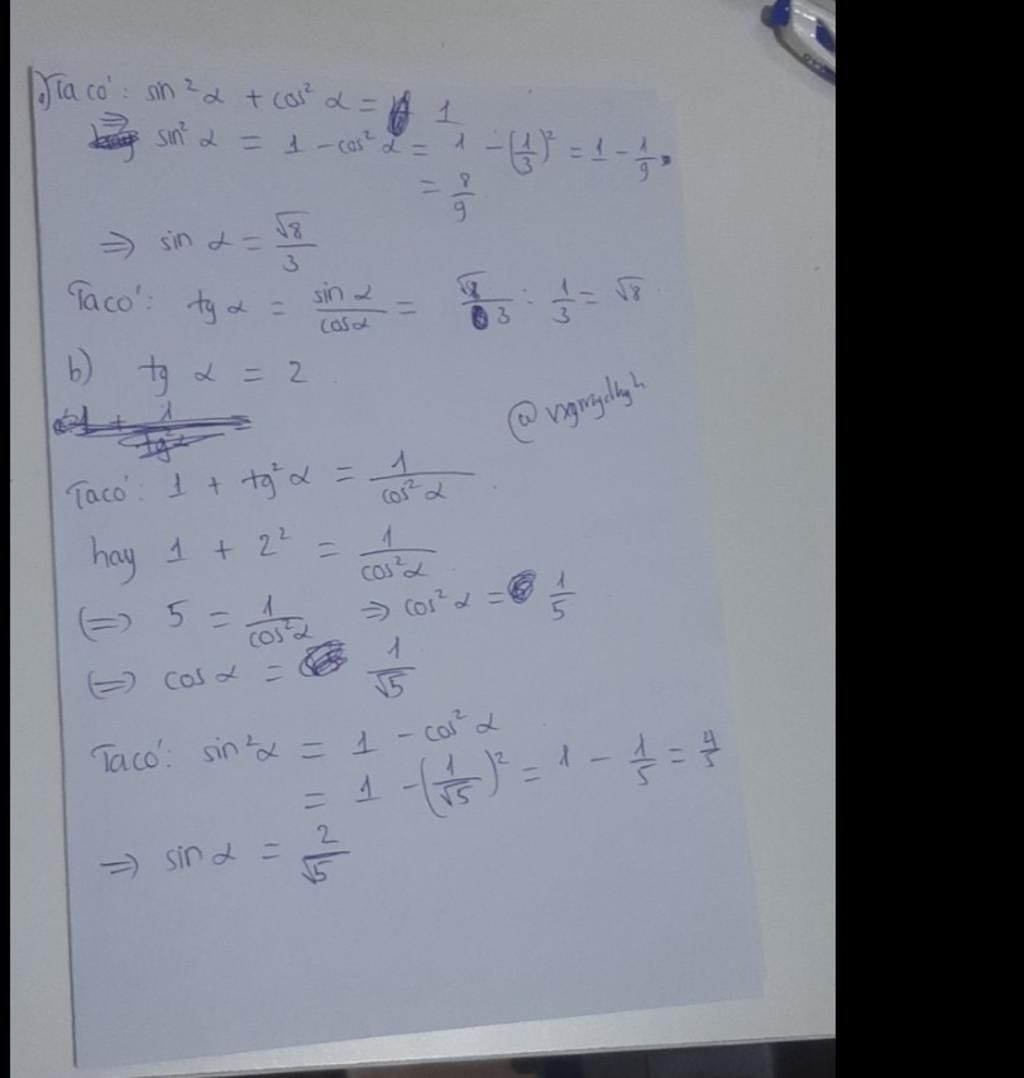 Ta có: sin² α + cos² α = 1
⇒ sin² α = 1 - cos² α = 1 - (1/3)² = 1 - 1/9
= 8/9
⇒ sin α = √8/3
Ta có: tg α = sin α/cos α = √8/3 : 1/3 = √8
b) tg α = 2
Ta có: 1 + tg² α = 1/cos² α
hay 1 + 2² = 1/cos² α
(=) 5 = 1/cos² α ⇒ cos² α = 1/5
(=) cos α = 1/√5
Ta có: sin² α = 1 - cos² α
= 1 - (1/√5)² = 1 - 1/5 = 4/5
⇒ sin α = 2/√5